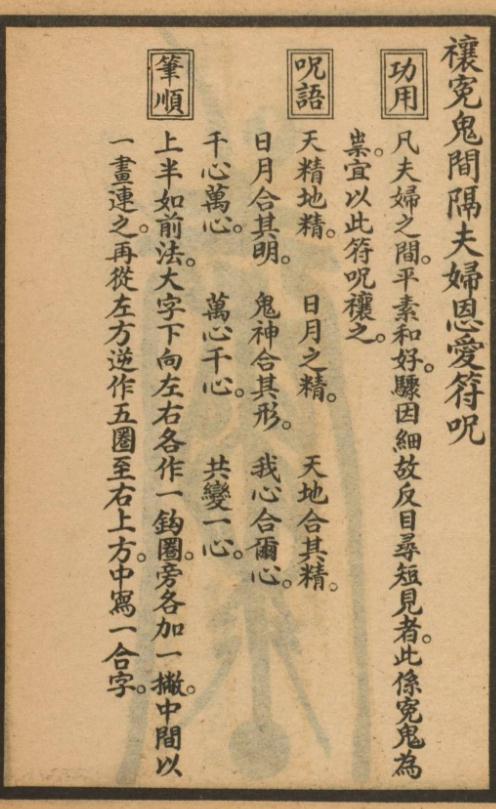 禳寃鬼間隔夫婦恩愛符呪
功用
凡夫婦之間。平素和好。驟因細故反目尋短見者。此係寃鬼為
祟。宜以此符呪禳之。
呪語
天精地精。 日月之精。 天地合其精。
日月合其明。 鬼神合其形。 我心合爾心。
千心萬心。 萬心千心。 共變一心。
筆順
上半如前法。大字下向左右各作一鈎圈。旁各加一撇。中間以
一畫連之。再從左方逆作五圈至右上方。中寫一合字。